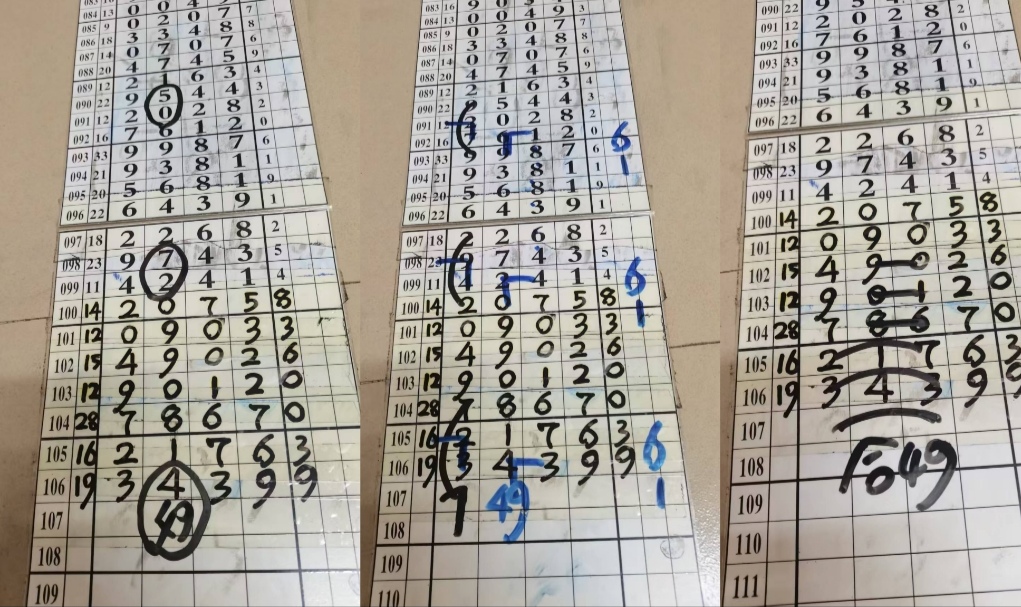 083 16 9 0
084 13 0 0 4 9 7
085 9 0 2 0 7 8
086 18 3 3 4 8 6
087 14 0 7 0 7 9
088 20 4 7 4 5 4
089 12 2 1 6 3 3
090 22 9 5 4 4 2
091 12 2 0 2 8 0
092 16 7 6 1 2 6
093 33 9 9 8 7 1
094 21 9 3 8 1 9
095 20 5 6 8 1
096 22 6 4 3 9 1
097 18 2 2 6 8 2
098 23 9 7 4 3 5
099 11 4 2 4 1 4
100 14 2 0 7 5 8
101 12 0 9 0 3 3
102 15 4 9 0 2 6
103 12 9 0 1 2 0
104 28 7 8 6 7 0
105 16 2 1 7 6 3
106 19 3 4 3 9 9
107 49
108
109
083 16 9 0
084 13 0 0 4 9
085 9 0 2 0 7
086 18 3 3 4 8
087 14 0 7 0 7
088 20 4 7 4 5 9
089 12 2 1 6 3 4
090 22 5 4 4 3
091 0 2 8 2
092 16 1 2 0 6
093 33 9 8 7 6 1
094 21 9 3 8 1 1
095 20 5 6 8 1 9
096 22 6 4 3 9 1
097 18 2 2 6 8 2
098 7 4 3 5
099 11 4 2 4 1 4 6
100 14 2 0 7 5 8 1
101 12 0 9 0 3 3
102 15 4 9 0 2 6
103 12 9 0 1 2 0
104 28 7 8 6 7 0
105 16 2 1 7 6 3 6
106 19 3 4 3 9 9 1
107 7 49
108
109
110
090 22 9 5
091 12 2 0 2 8 2
092 16 7 6 1 2 0
093 33 9 9 8 7 6
094 21 9 3 8 1 1
095 20 5 6 8 1 9
096 22 6 4 3 9 1
097 18 2 2 6 8 2
098 23 9 7 4 3 5
099 11 4 2 4 1 4
100 14 2 0 7 5 8
101 12 0 9 0 3 3
102 15 4 9 0 2 6
103 12 9 0 1 2 0
104 28 7 8 6 7 0
105 16 2 1 7 6 3
106 19 3 4 3 9 9
107
108 合49
109
110
111